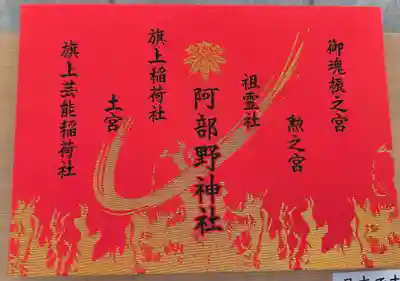 御魂振之宮
勲之宮
祖霊社
阿部野神社
旗上稲荷社
土宮
旗上芸能稲荷社